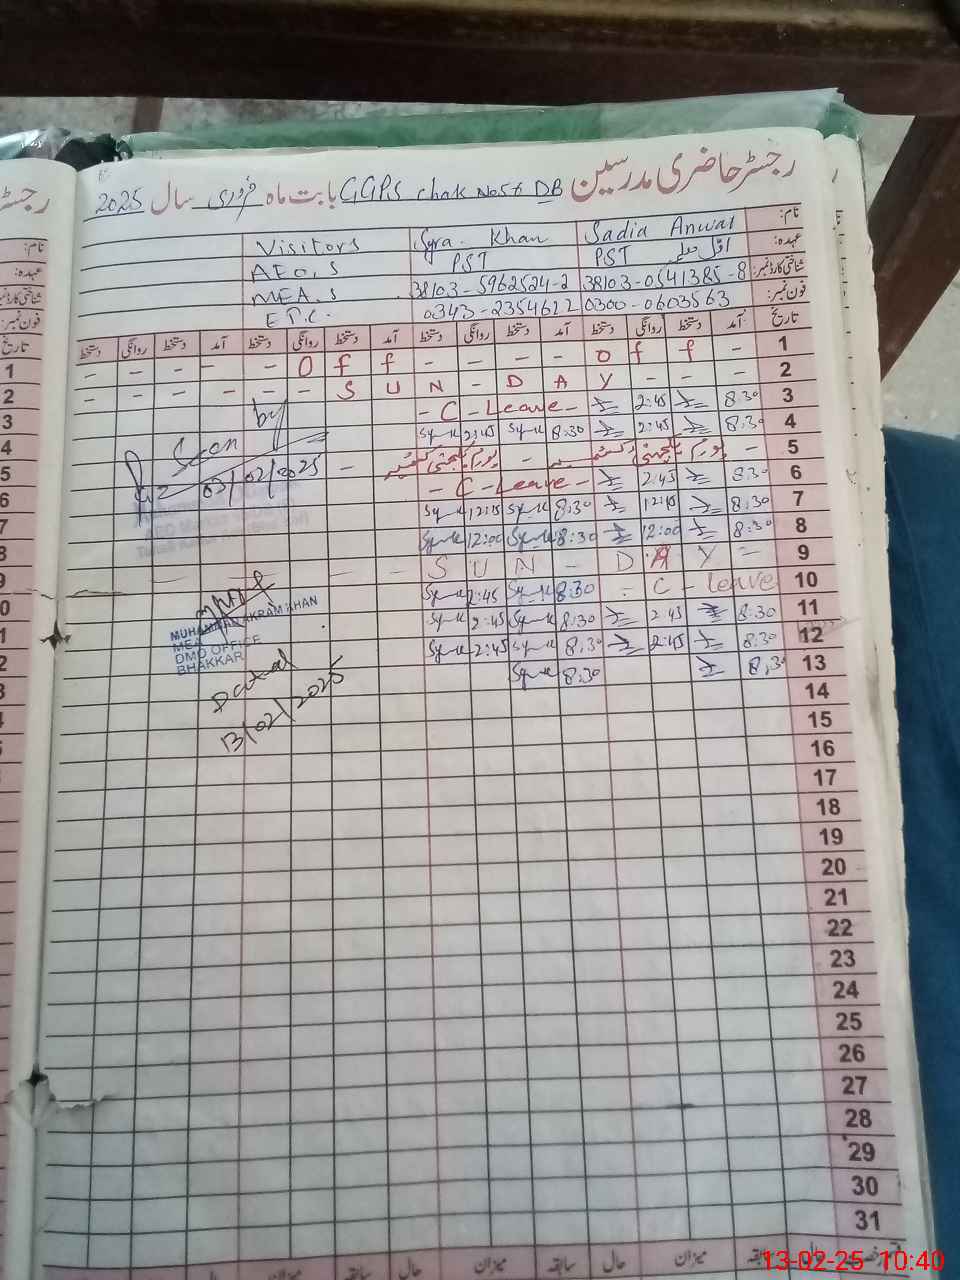 رجسٹر حاضری مدرسین GGPS chak No 56 DB بابت ماہ فروری سال 2025
نام: Sadia Anwar Syra Khan Visitors
عہدہ: PST PST AEO,S
شناختی کارڈ نمبر: 38103-0541385-8 38103-5962524-2 MEA,S
فون نمبر: 0300-0603563 0343-2354612
تاریخ آمد دستخط روانگی دستخط آمد دستخط روانگی دستخط آمد دستخط روانگی دستخط آمد دستخط روانگی دستخط
1 - O f f - - - - O f f - - - - -
2 - - - S U N - D A Y - - -
3 8:30 2:45 - C - Leave -
4 8:30 2:45 8:30 2:45
5 یوم یکجہتی کشمیر - یوم یکجہتی کشمیر -
6 8:30 2:45 - C - Leave -
7 8:30 12:15 8:30 12:15
8 8:30 12:00 8:30 12:00
9 S U N - D A Y -
10 - C - leave 8:30 2:45
11 8:30 2:45 8:30 2:45
12 8:30 2:45 8:30 2:45
13 8:30 8:30
14
15
16
17
18
19
20
21
22
23
24
25
26
27
28
29
30
31
Seen by
02/02/2025
MUHAMMAD AKRAM KHAN
MEA
DMO OFFICE
BHAKKAR
Dated
13/02/2025
میزان سابقہ حال میزان سابقہ حال میزان سابقہ
رجسٹر
نام:
عہدہ:
فون نمبر:
تاریخ
1
2
3
4
5
6
7
8
13-02-25 10:40